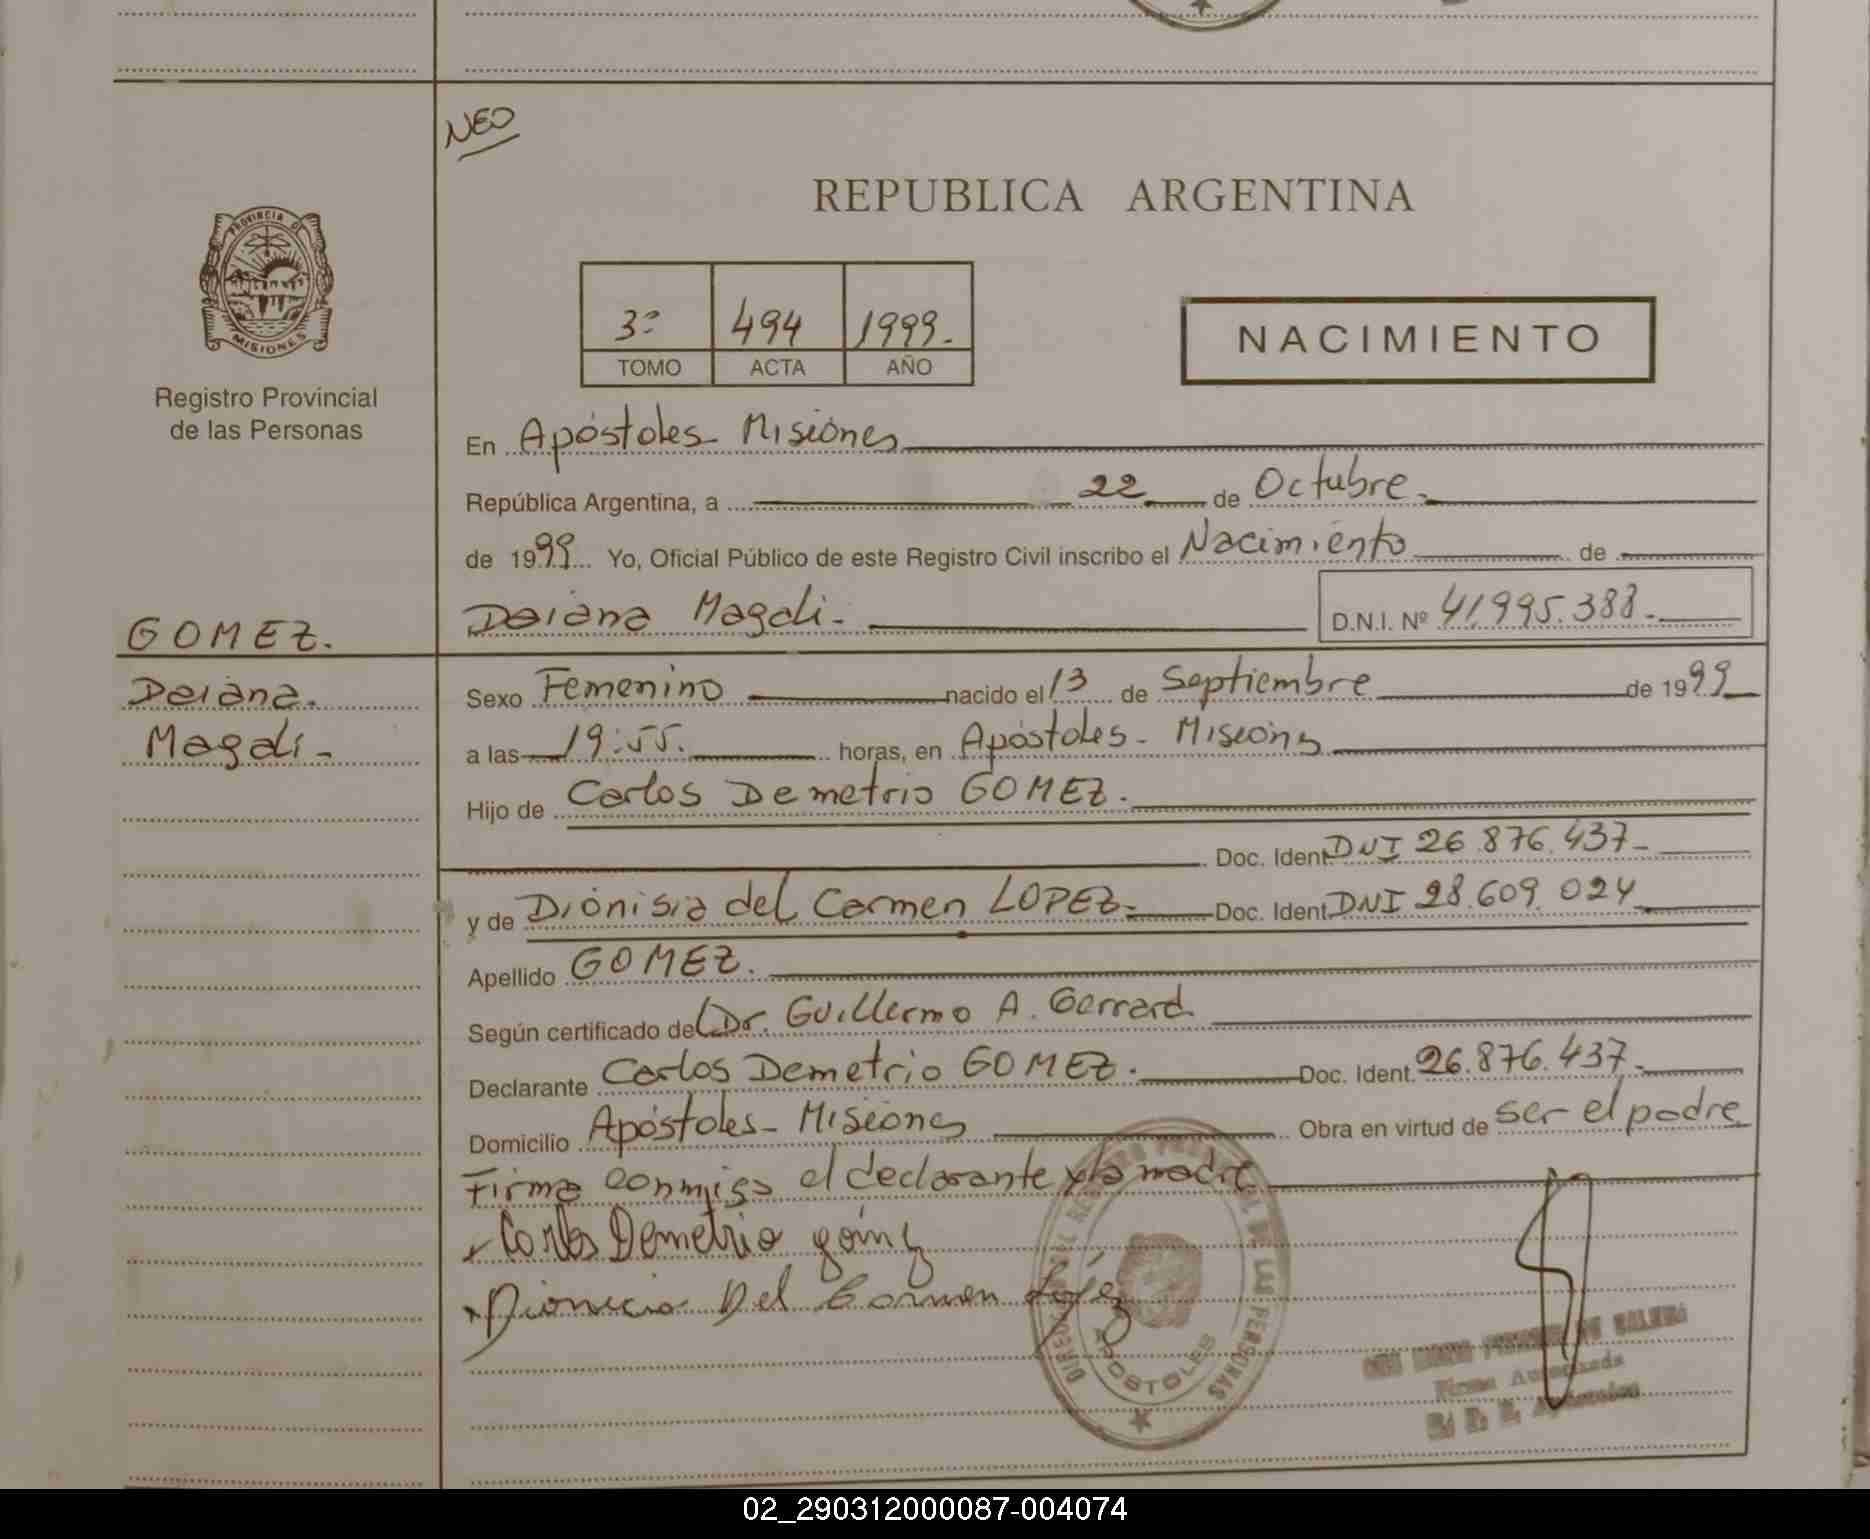 NEO
REPUBLICA ARGENTINA
PROVINCIA DE
MISIONES
Registro Provincial
de las Personas
3º 494 1999.-
TOMO ACTA AÑO
NACIMIENTO
En Apóstoles - Misiones
República Argentina, a 22 de Octubre.-
de 1999 Yo, Oficial Público de este Registro Civil inscribo el Nacimiento de
Daiana Magali.- D.N.I. Nº 41.995.388.-
GOMEZ.
Daiana.
Magali-
Sexo Femenino nacido el 13 de Septiembre de 1999
a las 19:55. horas, en Apóstoles - Misiones
Hijo de Carlos Demetrio GOMEZ.
Doc. Ident. DNI 26.876.437-
y de Dionisia del Carmen LOPEZ.- Doc. Ident. DNI 28.609.024
Apellido GOMEZ.
Según certificado de Dr. Guillermo A. Gerrard
Declarante Carlos Demetrio GOMEZ. Doc. Ident. 26.876.437.-
Domicilio Apóstoles - Misiones Obra en virtud de ser el padre
Firma conmigo el declarante y la madre
Carlos Demetrio gómez
Dionicia Del Carmen López
DE LAS PERSONAS
APOSTOLES
Firma Autorizada
02_290312000087-004074